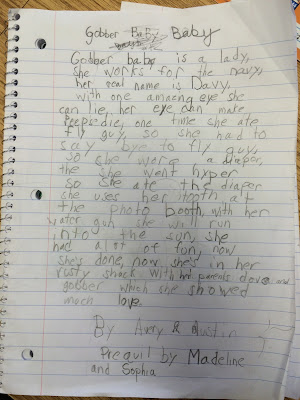 Gobber Baby Baby
Gobber babe is a lady,
she works for the navy,
her real name is Davy,
with one amazing eye she
can lie, her eye can make
peeps die, one time she ate
fly guy, so she had to
say bye to fly guy,
so she wore a diaper,
the she went hyper
so she ate the diaper
she uses her tooth at
the photo booth, with her
water gun she will run
intoy the sun, she
had a lot of fun, now
she's done, now she's in her
rusty shack with her parents dove and
gobber which she showed
much love.
By Avery &
Prequil by Madeline
and Sophia